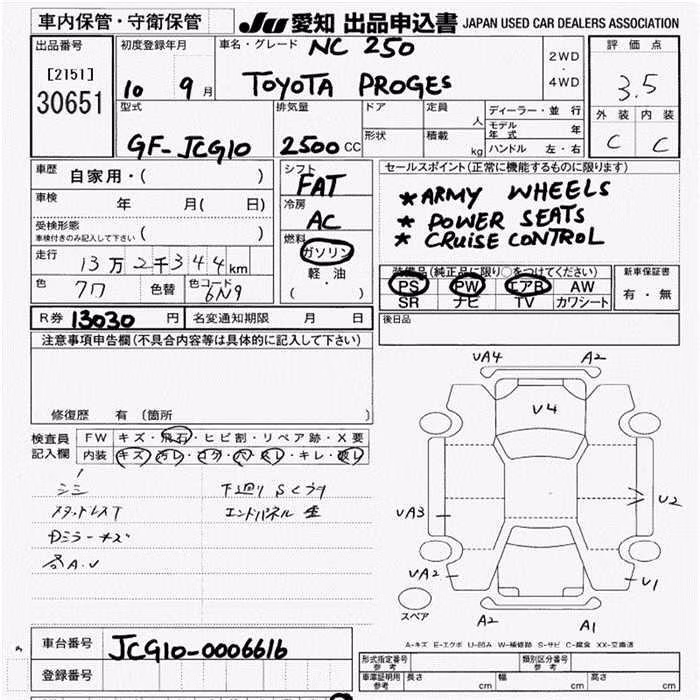 車内保管・守衛保管 JU 愛知 出品申込書 JAPAN USED CAR DEALERS ASSOCIATION
出品番号 初度登録年月 車名・グレード NC 250 2WD・4WD 評価点
[2151] 30651 10 9月 TOYOTA PROGES 3.5
型式 排気量 ドア 定員 人 ディーラー・並行 外装 内装
GF-JCG10 2500CC 形状 積載 kg モデル年式 年 C C
ハンドル 左・右
車歴 自家用・( ) シフト FAT セールスポイント(正常に機能するものに限ります)
車検 年 月( 日) 冷房 AC * ARMY WHEELS
受検形態 車検付きのみ記入して下さい ( ) * POWER SEATS
燃料 ガソリン * CRUISE CONTROL
走行 13万2千344km 軽・油 ( )
装備品(純正品に限り○をつけてください) 新車保証書
色 色替 色コード 6N9 PS PW エアB AW 有・無
SR ナビ TV カワシート
R券 13030 円 名変通知期限 月 日 後日品
注意事項申告欄(不具合内容等は具体的に記入して下さい)
修復歴 有 [箇所 ]
検査員記入欄 FW キズ・飛石・ヒビ割・リペア跡・X要
内装 キズ・汚レ・コゲ・穴・スレ・キレ・破レ
シミ 下廻り Sくうサ
エンドパネル
各A.U
UA4 A2
U4
UA3 U2
UA2 U1
スペア
A2 A1
A-キズ E-エクボ U-凹み W-補修跡 S-サビ C-腐食 XX-交換済
車台番号 JCG10-0006616
登録番号
形式指定番号 参考 類別区分番号 参考
車庫証明用 参考 長さ cm 幅 cm 高さ cm